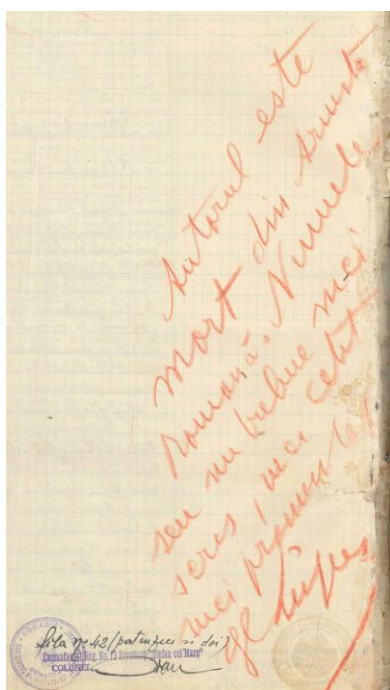 Autorul este
mort din armata
Română. Numele
seu nu trebue nici
scris, nici cetit
nici pronunțat
Fila No 42 (patruzeci si doi)
Comandantul Reg. Nr. 13 Dorobanți "Ștefan cel Mare"
COLONEL